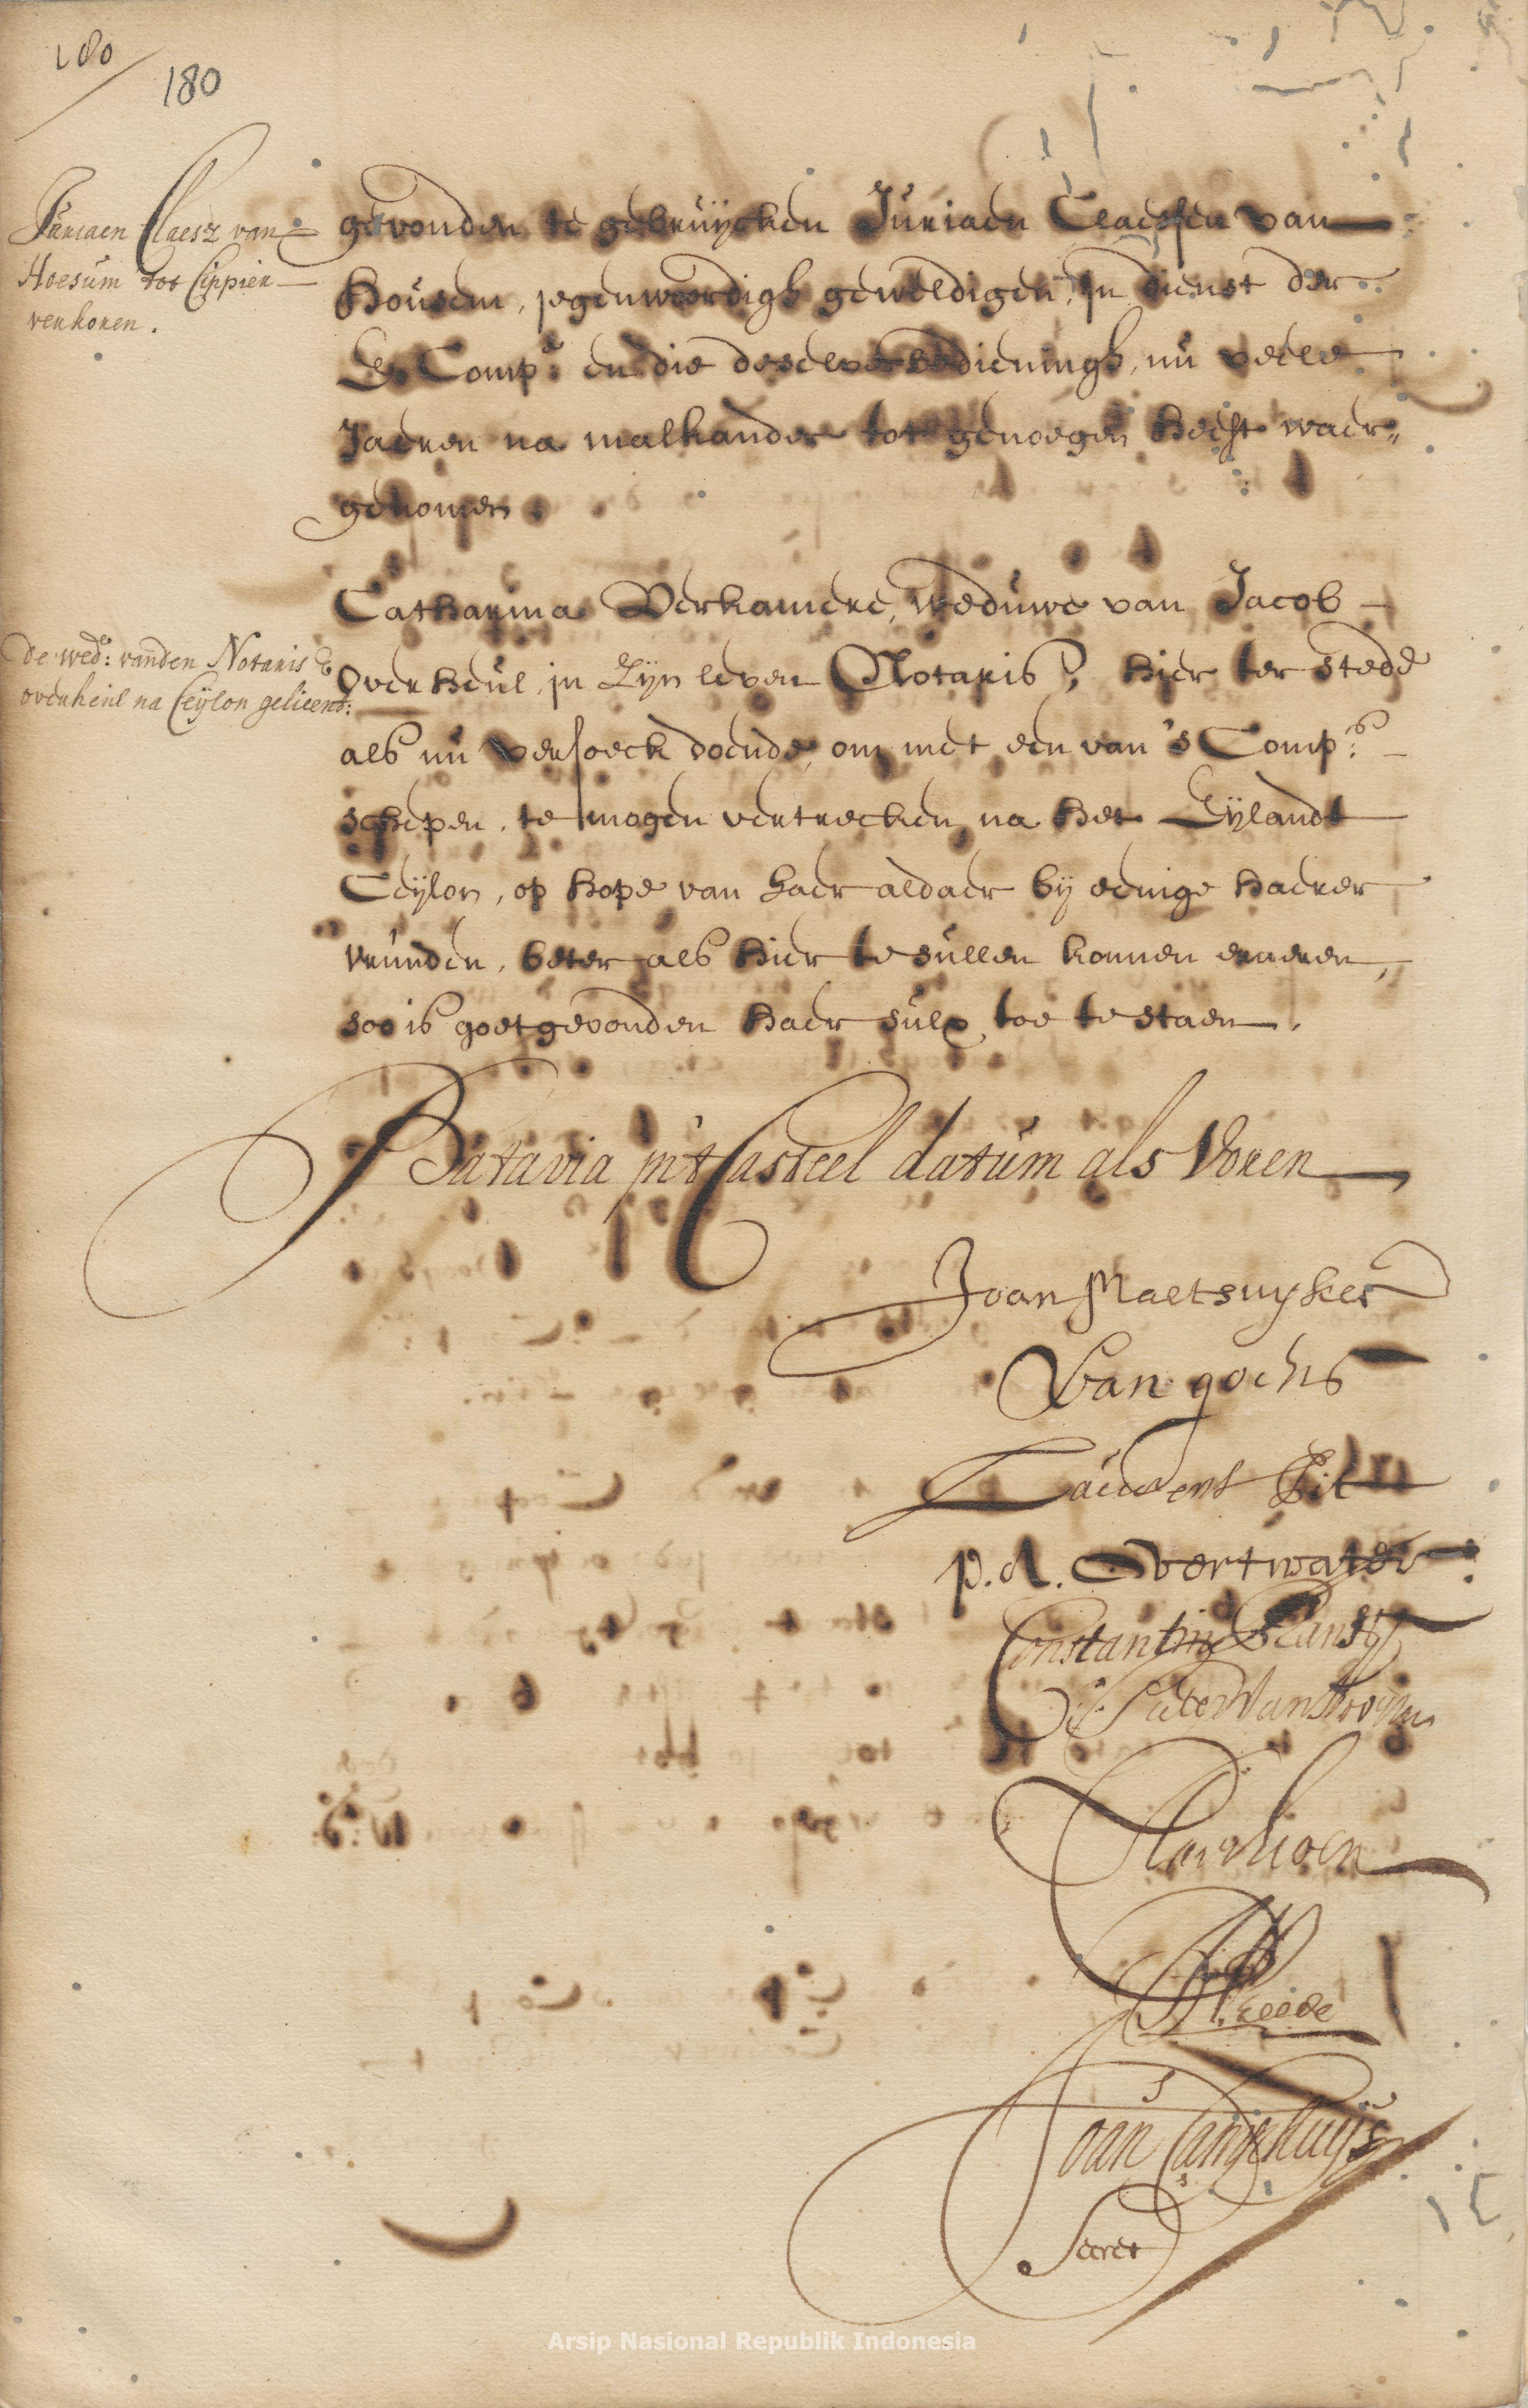 180
180
Juriaen Claesz van
Hoesum tot Cippier
verkoren.
gevonden te gebruijcken Juriaen Claessen van
Housem, jegenwoordigh geweldigen, in dienst der
E. Comp.e en die deselve bedieningh, nu veele
Jaeren na malkander tot genoegen heeft waer„
genomen.
de wed.e vanden Notaris
overheul na Ceijlon gelicent:
Catharina Verkamere, weduwe van Jacob
Overheul, in Zijn leven Notaris, hier ter stede
als nu versoeck doende, om met een van 's Comp.s
schepen, te mogen vertrecken na het Eijlandt
Ceijlon, op hope van haer aldaer bij eenige haerer
vrunden, beter als hier te sullen konnen erneren,
soo is goetgevonden haer sulx toe te staen.
Batavia in't Casteel datum als Voren
Joan Maetsuyker
Van goens
Laurens Pit
p. A. Overtwater
Pieter Van Hoorn
Joan Camphuijs
Secret
Arsip Nasional Republik Indonesia